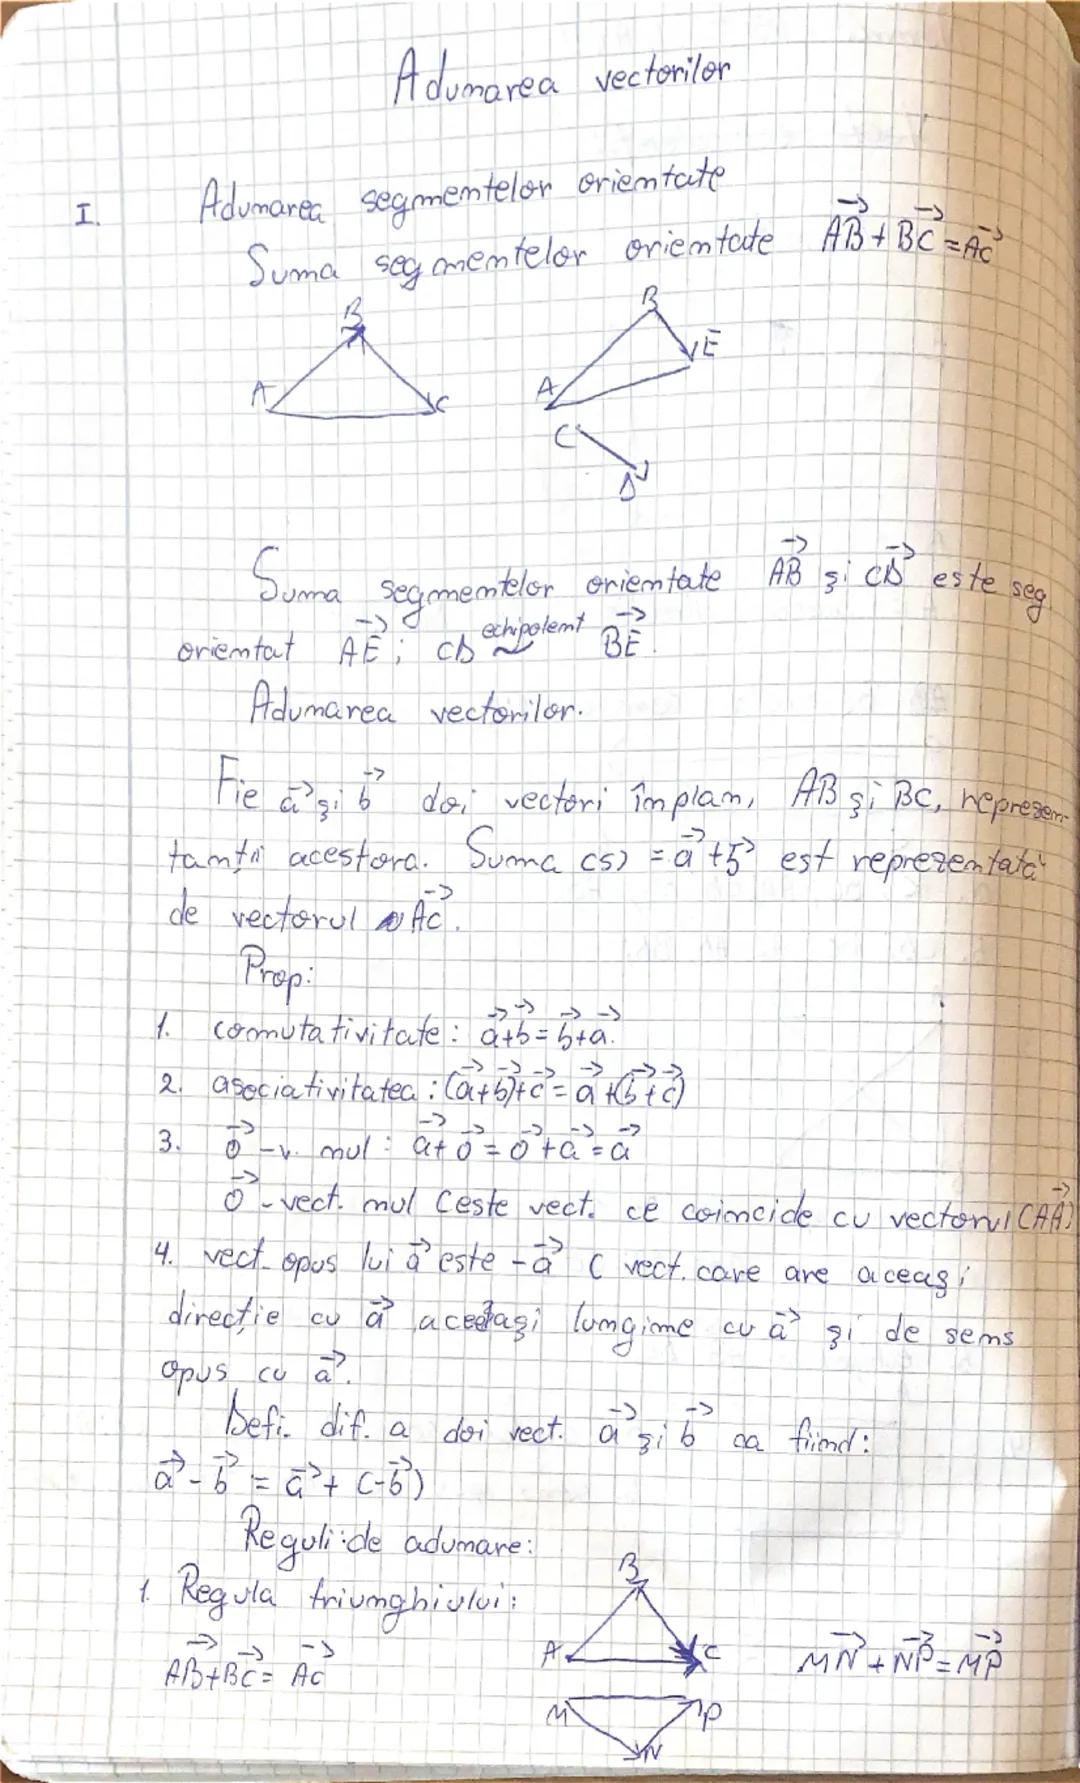 Adunarea vectorilor
I. Adunarea segmentelor orientate
Suma segmentelor orientate AB⃗ + BC⃗ = AC⃗
B
A
C
B
E
A
C
D
Suma segmentelor orientate AB⃗ și CD⃗ este seg
orientat AE⃗ ; CD echipolent ~ BE⃗.
Adunarea vectorilor.
Fie a⃗ și b⃗ doi vectori în plan, AB și BC, reprezen-
tanții acestora. Suma (s) = a⃗ + b⃗ est reprezentată
de vectorul AC⃗.
Prop:
1. comutativitate: a⃗+b⃗=b⃗+a⃗.
2. asociativitatea: (a⃗+b⃗)+c⃗ = a⃗+(b⃗+c⃗)
3. 0⃗ - v. nul: a⃗+0⃗=0⃗+a⃗=a⃗
0⃗ - vect. nul (este vect. ce coincide cu vectorul (AA⃗)
4. vect. opus lui a⃗ este -a⃗ ( vect. care are aceași
direcție cu a⃗ aceeași lungime cu a⃗ și de sens
opus cu a⃗.
Defi. dif. a doi vect. a⃗ și b⃗ ca fiind:
a⃗ - b⃗ = a⃗ + (-b⃗)
Reguli de adunare:
1. Regula triunghiului:
B
A
C
AB⃗+BC⃗= AC⃗
MN⃗ + NP⃗ = MP⃗
M
P
N